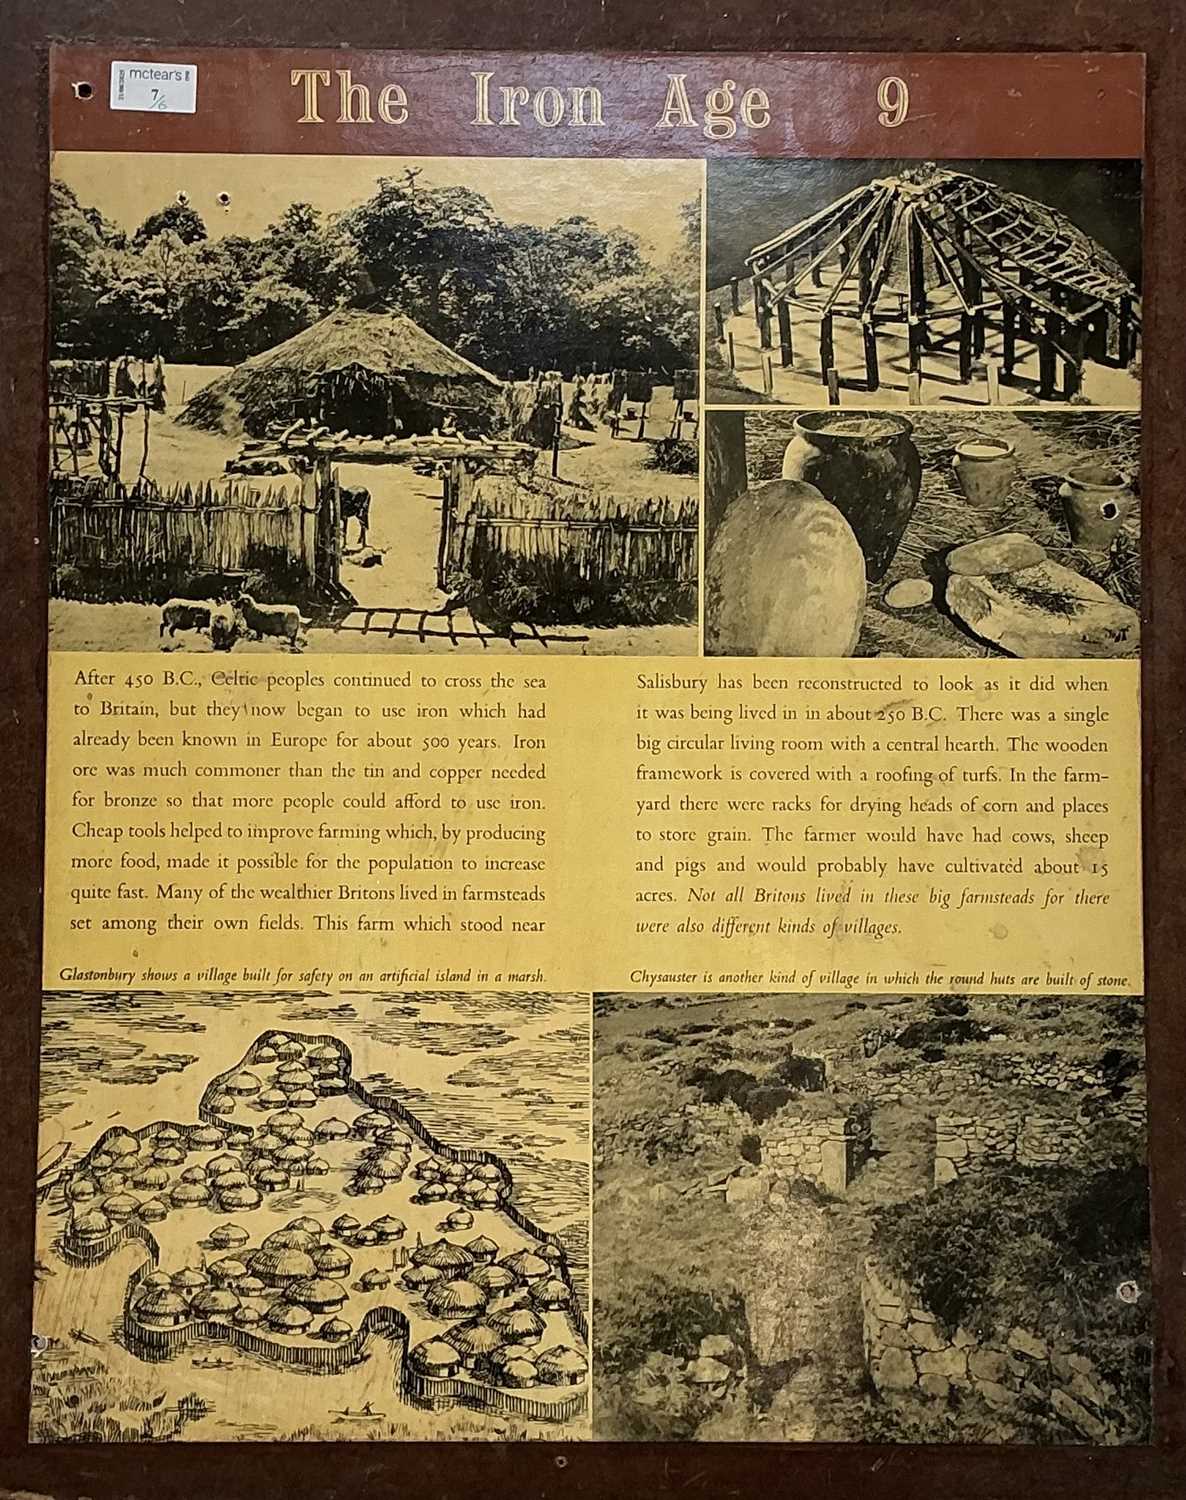 mctear's
7/6
The Iron Age 9
After 450 B.C., Celtic peoples continued to cross the sea
to Britain, but they now began to use iron which had
already been known in Europe for about 500 years. Iron
ore was much commoner than the tin and copper needed
for bronze so that more people could afford to use iron.
Cheap tools helped to improve farming which, by producing
more food, made it possible for the population to increase
quite fast. Many of the wealthier Britons lived in farmsteads
set among their own fields. This farm which stood near
Salisbury has been reconstructed to look as it did when
it was being lived in in about 250 B.C. There was a single
big circular living room with a central hearth. The wooden
framework is covered with a roofing of turfs. In the farm-
yard there were racks for drying heads of corn and places
to store grain. The farmer would have had cows, sheep
and pigs and would probably have cultivated about 15
acres. Not all Britons lived in these big farmsteads for there
were also different kinds of villages.
Glastonbury shows a village built for safety on an artificial island in a marsh.
Chysauster is another kind of village in which the round huts are built of stone.